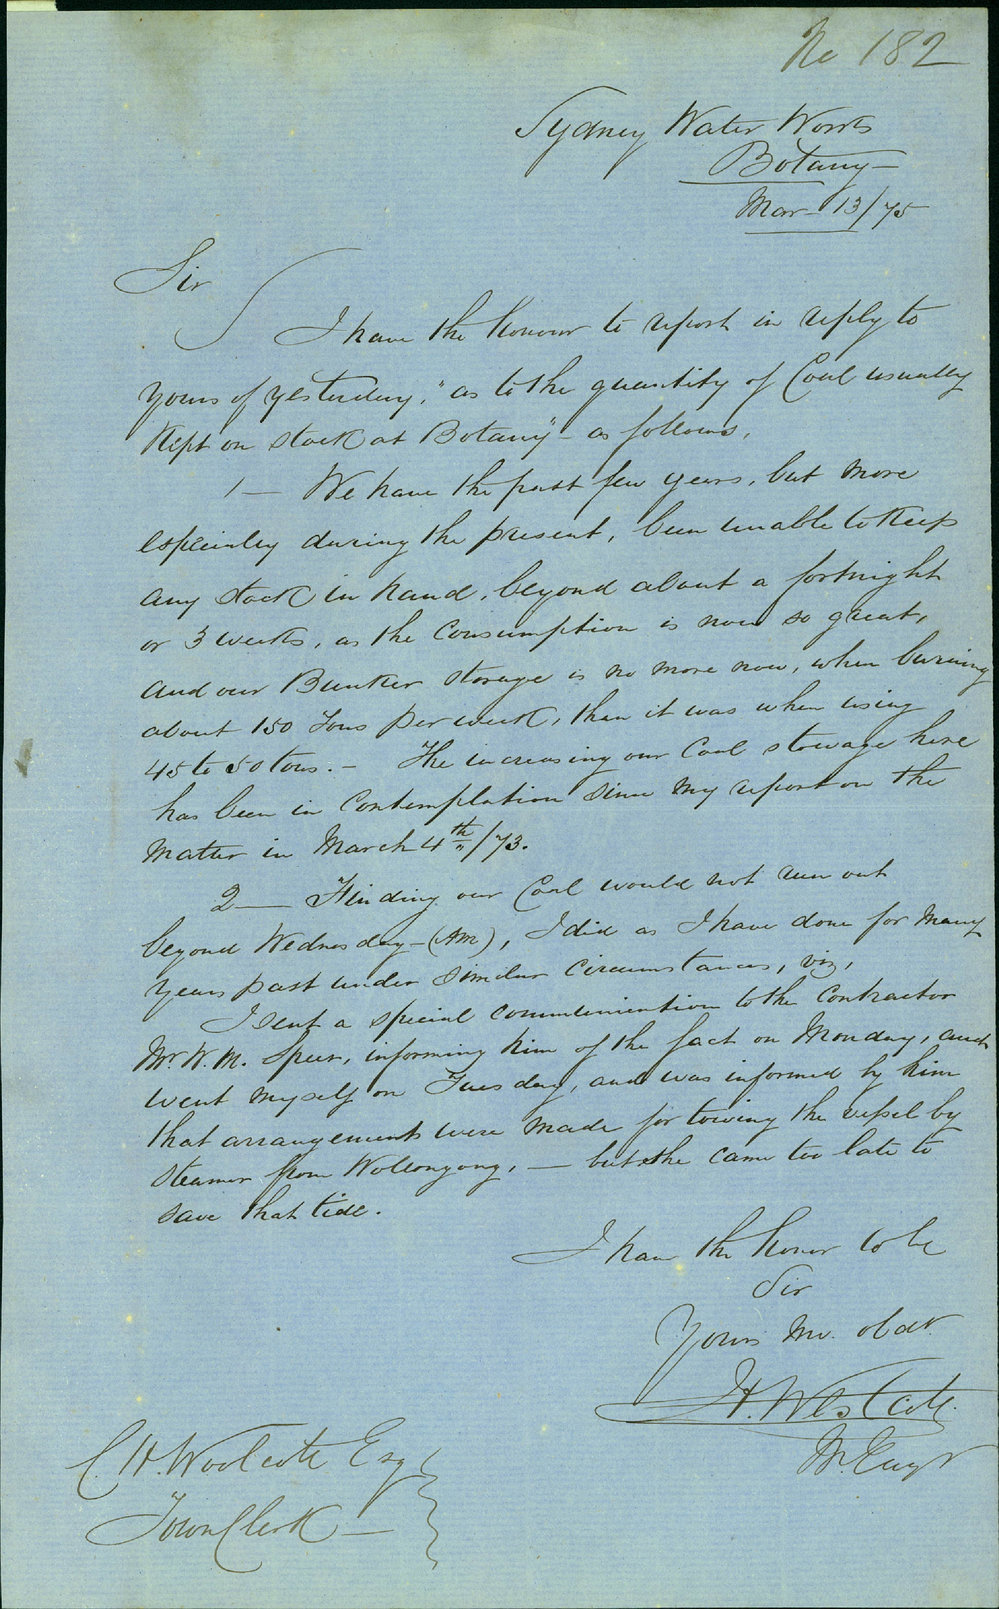 No 182
Sydney Water Works
Botany
Mar 13/75
Sir
I have the honour to report in reply to
yours of yesterday, "as to the quantity of Coal usually
Kept on stock at Botany" - as follows,
1 — We have the past few years, but more
especially during the present, been unable to Keep
any stock in hand, beyond about a fortnight
or 3 weeks, as the Consumption is now so great,
and our Bunker storage is no more now, when burning
about 150 Tons per week, than it was when using
45 to 50 tons. — The increasing our Coal stowage here
has been in Contemplation since my report on the
matter in March 4th/73.
2 — Finding our Coal would not run out
beyond Wednesday - (AM), I did as I have done for many
years past under similar circumstances, viz,
I sent a special communication to the Contractor
Mr. W. M. Speer, informing him of the fact on Monday, and
went myself on Tuesday, and was informed by him
that arrangements were made for towing the vessel by
steamer from Wollongong, — but she came too late to
save that tide.
I have the honor to be
Sir
Yours mo. obdt.
H. Westcott.
C. H. Woolcott Esq
Town Clerk —